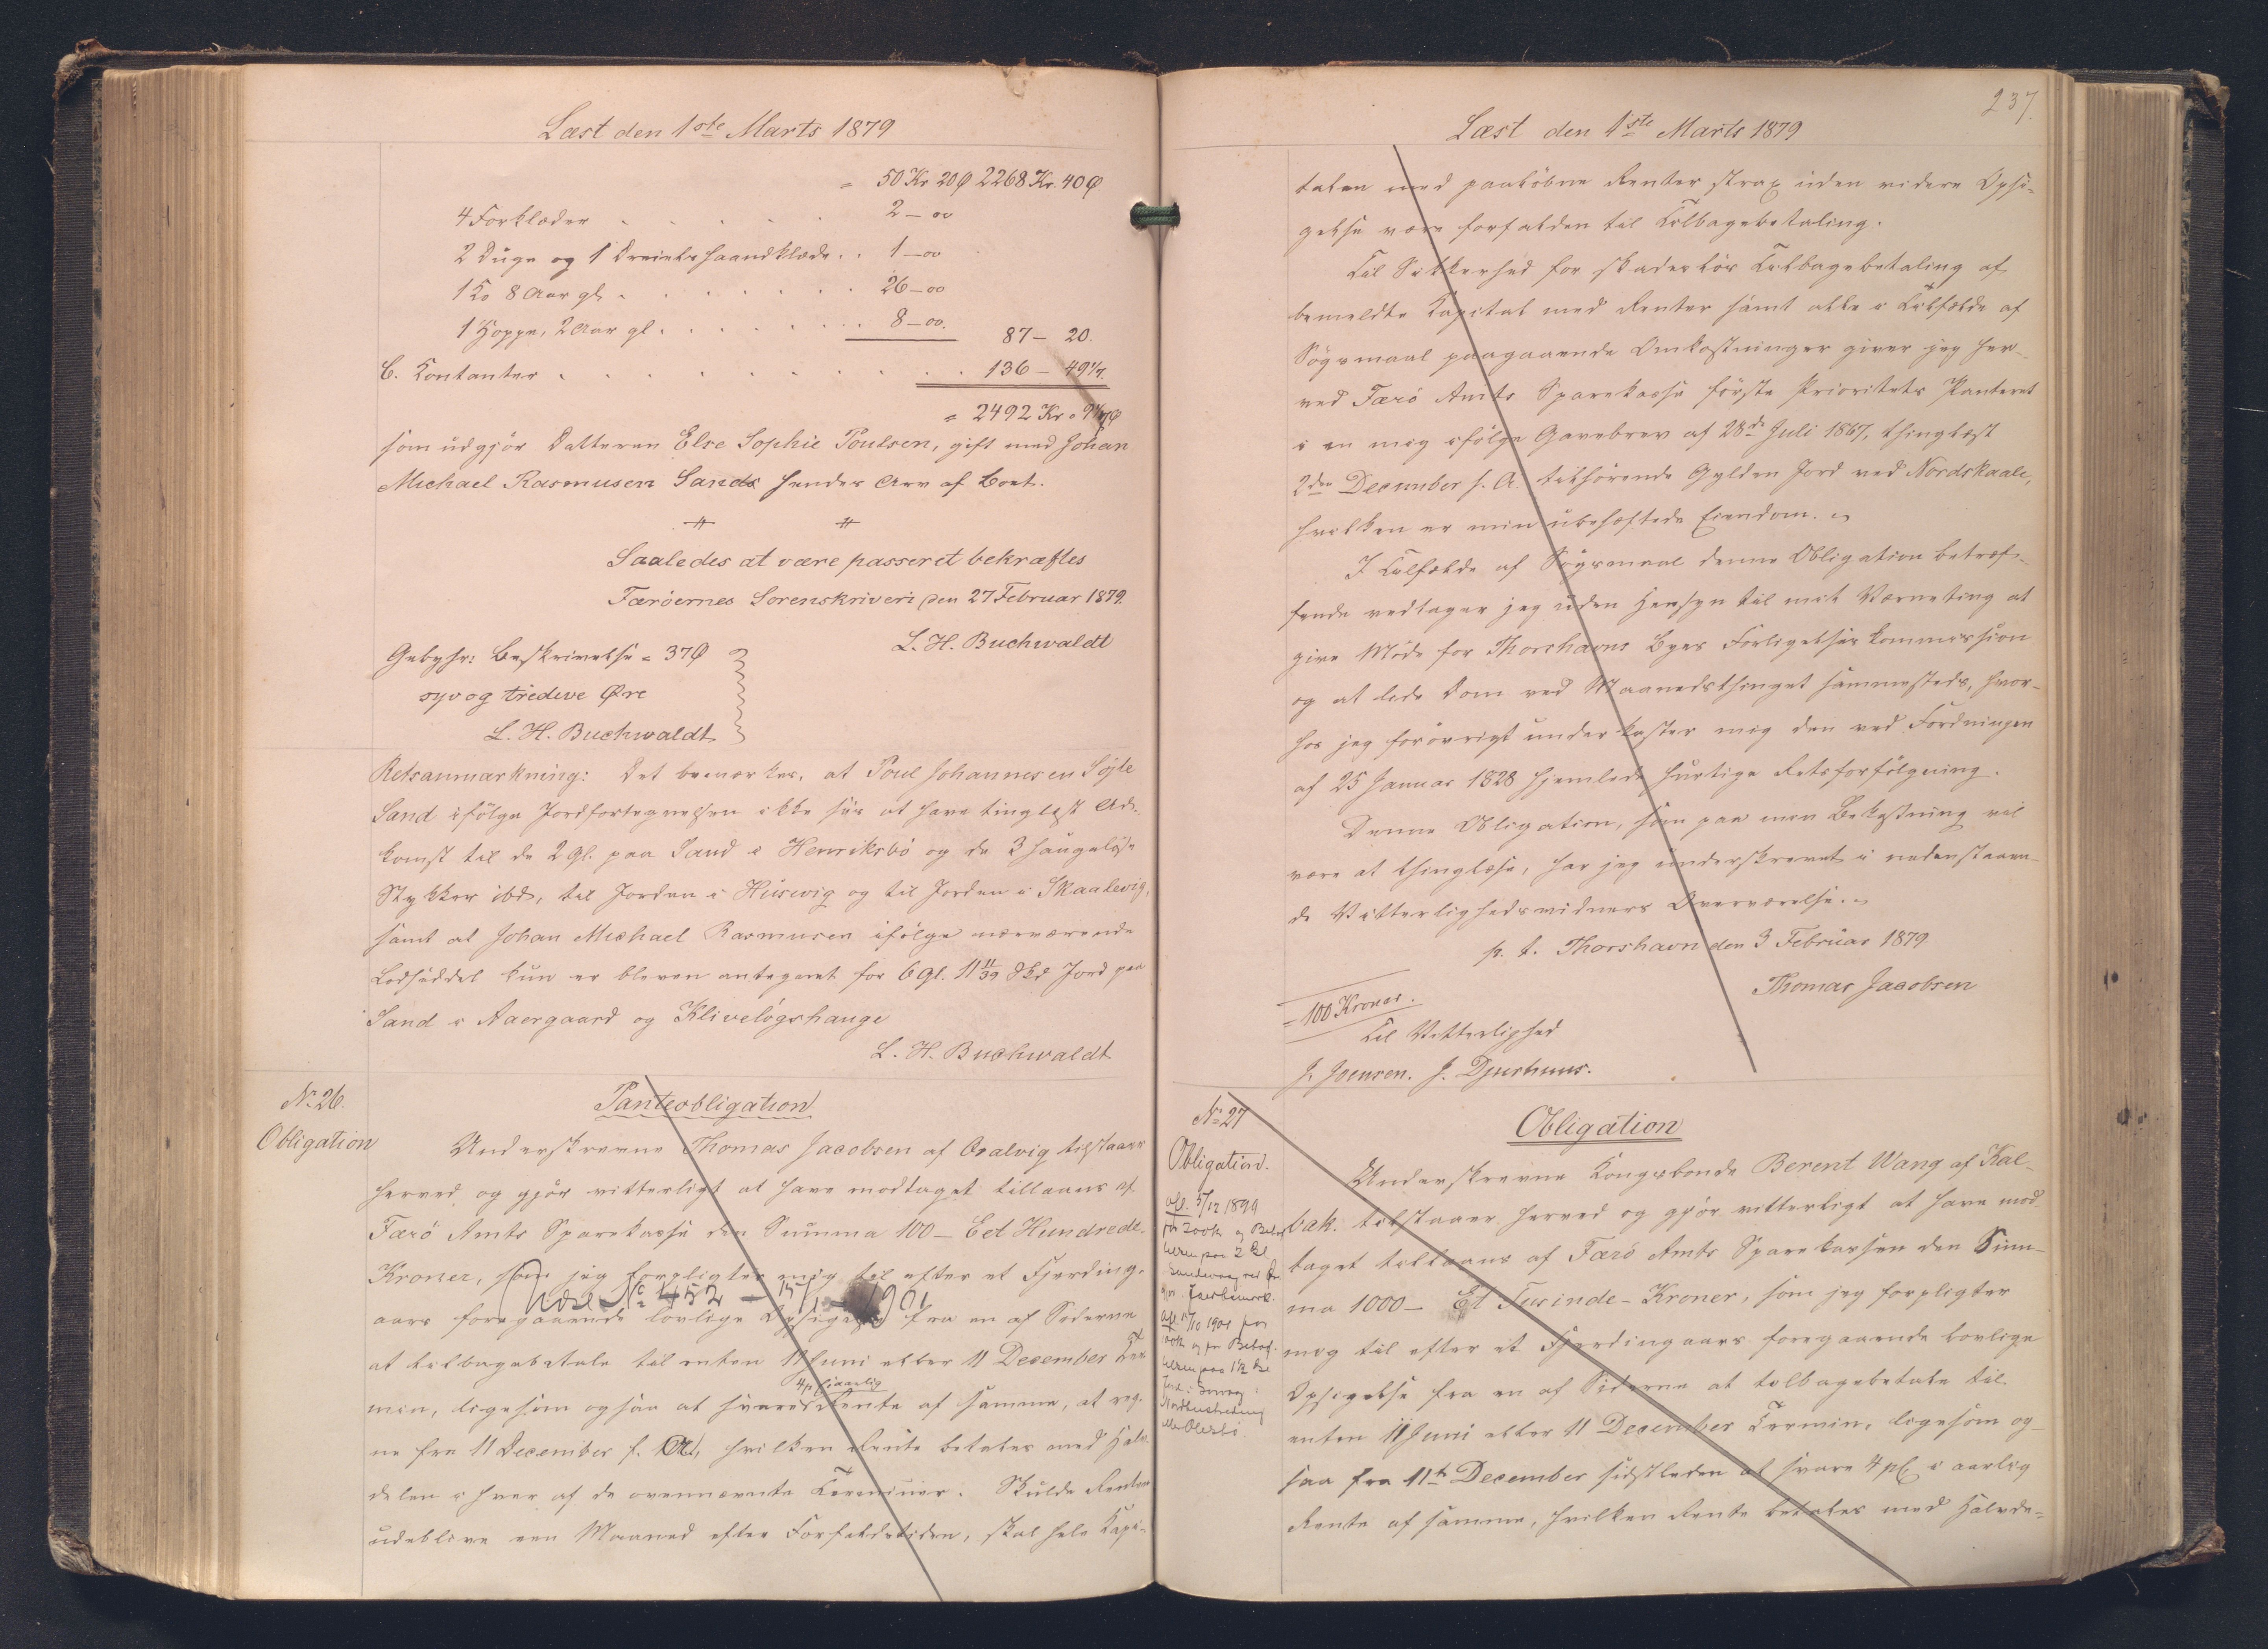 Læst den 1ste Marts 1879
= 50 Kr 20 Ø 2268 Kr. 40 Ø
4 Forklæder . . . . . 2 – 00
2 Duge og 1 Dreiels Haandklæde . . 1 – 00
1 Ko 8 Aar gl. . . . . . . . 26 – 00
1 Hoppe, 2 Aar gl. . . . . . . . 8 – 00. 87 – 20.
C. Kontanter . . . . . . . . . . 136 – 49 1/7.
= 2492 Kr. 9 1/7 Ø
som udgjør Datteren Else Sophie Poulsen, gift med Johan
Michael Rasmusen Sands hendes Arv af Boet.
Saaledes at være passeret bekræftes
Færöernes Sorenskriveri den 27 Februar 1879.
L. H. Buchwaldt
Gebyhr: Beskrivelse = 37 Ø
syv og tredeve Øre
L. H. Buchwaldt
Retsanmærkning: Det bemærkes, at Poul Johannesen Söjle
Sand ifölge Jordfortegnelsen ikke ses at have tinglæst Ad-
komst til de 2 Gl. paa Sand i Henriksbö og de 3 haugelöse
Stykker ibd, til Jorden i Husevig og til Jorden i Skaalevig,
samt at Johan Michael Rasmusen ifölge nærværende
Lodseddel kun er bleven antegnet for 6 Gl. 11 11/39 Skd Jord paa
Sand i Aaergaard og Klivelögshauge
L. H. Buchwaldt
No 26.
Obligation
Panteobligation
Underskrevne Thomas Jacobsen af Qvalvig tilstaaer
herved og gjör vitterligt at have modtaget tillaans af
Færö Amts Sparekasse den Summa 100 – Eet Hundrede
Kroner, som jeg forpligter mig til efter et Fjerding-
aars foregaaende lovlige Opsigelse fra en af Siderne
at tilbagebetale til enten 11 Juni eller 11 December Ter-
min, ligesom ogsaa at svare 4 p% i aarlig Rente af samme, at reg-
ne fra 11 December f. A., hvilken Rente betales med Halv-
delen i hver af de ovennævnte Terminer. Skulde Renten
udeblive een Maaned efter Forfaldstiden, skal hele Kapi-
237.
Læst den 1ste Marts 1879
talen med paalöbne Renter strax uden videre Opsi-
gelse være forfalden til Tilbagebetaling.
Til Sikkerhed for skadeslös Tilbagebetaling af
bemeldte Kapital med Renter samt alle i Tilfælde af
Sögsmaal paagaaende Omkostninger giver jeg her-
ved Færö Amts Sparekasse förste Prioritets Panteret
i en mig ifölge Gavebrev af 28de Juli 1867, thinglæst
2den December s. A. tilhörende Gylden Jord ved Nordskaale,
hvilken er min ubehæftede Eiendom.
I Tilfælde af Sögsmaal denne Obligation betræf-
fende vedtager jeg uden Hensyn til mit Værneting at
give Möde for Thorshavns Byes Forligelseskommission
og at lide Dom ved Maanedsthinget sammesteds, hvor-
hos jeg forövrigt underkaster mig den ved Fordningen
af 25 Januar 1828 hjemlede hurtige Retsforfölgning.
Denne Obligation, som paa min Bekostning vil
være at thinglæse, har jeg underskrevet i nedenstaaen-
de Vitterlighedsvidners Overværelse.
p. t. Thorshavn den 3 Februar 1879
Thomas Jacobsen
= 100 Kroner.
Til Vitterlighed
J. Joensen. J. Djurhuus.
No 27
Obligation.
Obligation
Underskrevne Kongsbonde Berent Wang af Kal-
bak tilstaaer herved og gjör vitterligt at have mod-
taget tillaans af Færö Amts Sparekassen den Sum-
ma 1000 – Et Tusinde – Kroner, som jeg forpligter
mig til efter et Fjerdingaars foregaaende lovlige
Opsigelse fra en af Siderne at tilbagebetale til
enten 11 Juni eller 11 December Termin, ligesom og-
saa fra 11te December sidstleden at svare 4 p% i aarlig
Rente af samme, hvilken Rente betales med Halvde-
afl. 5/12 1899